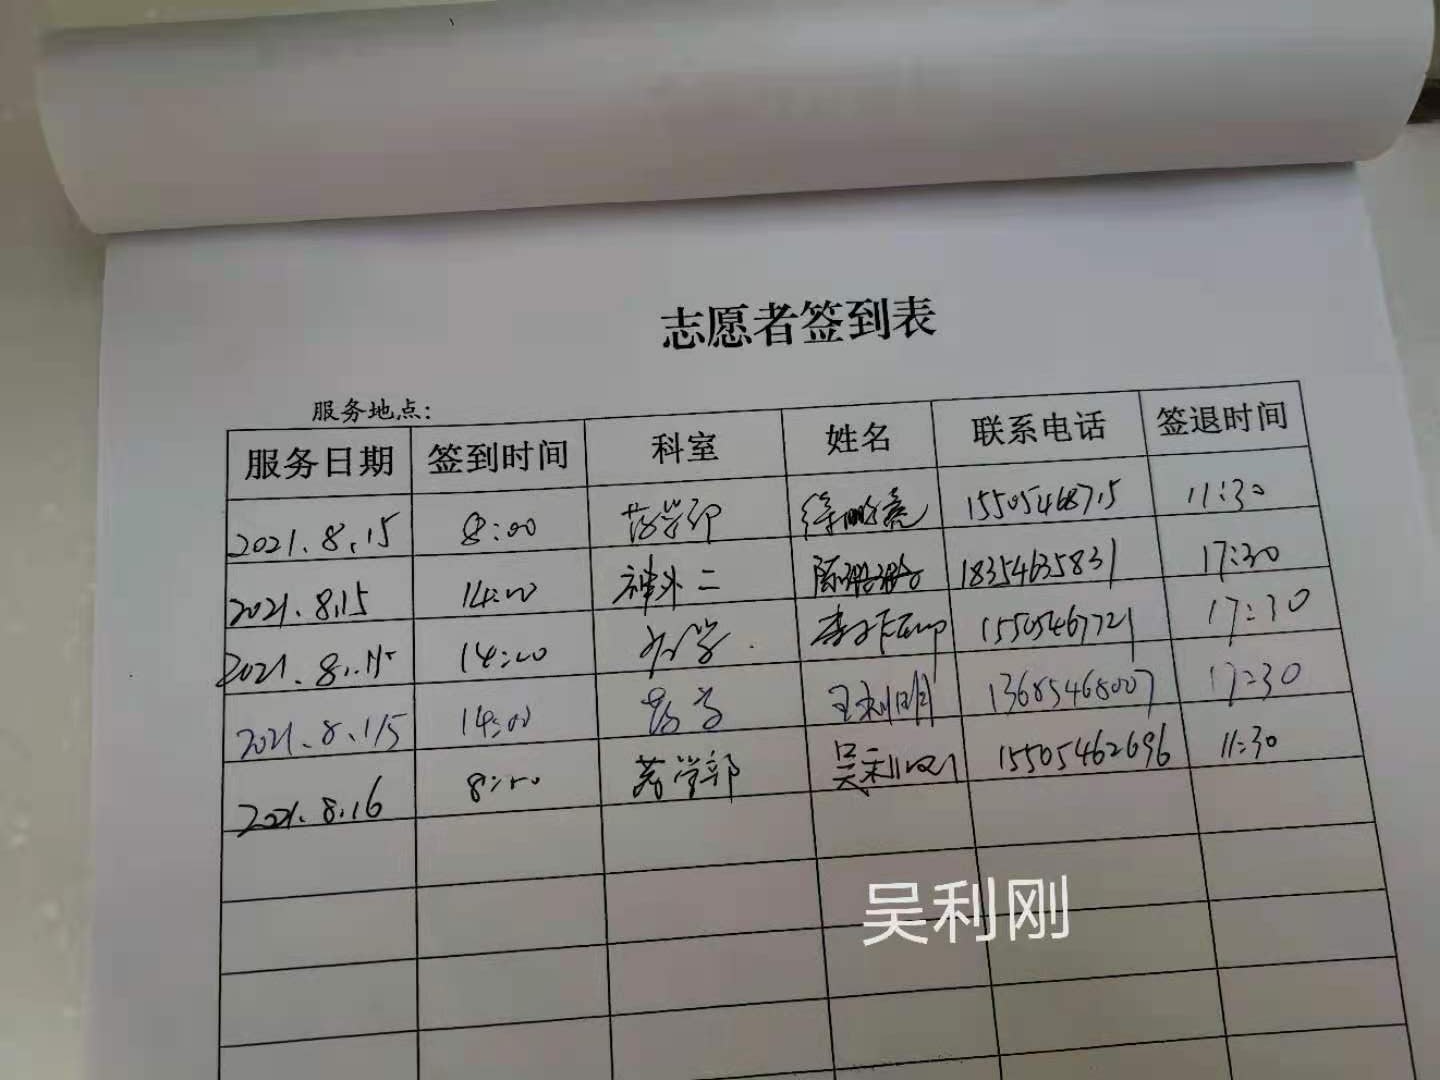 志愿者签到表
服务地点：
服务日期 签到时间 科室 姓名 联系电话 签退时间
2021.8.15 8:00 药学部 徐 15505468715 11:30
2021.8.15 14:00 神外二 陈 18354635831 17:30
2021.8.15 14:00 李 15505467721 17:30
2021.8.15 14:00 药学 王利明 13685468007 17:30
2021.8.16 8:00 药学部 吴利刚 15505462696 11:30
吴利刚